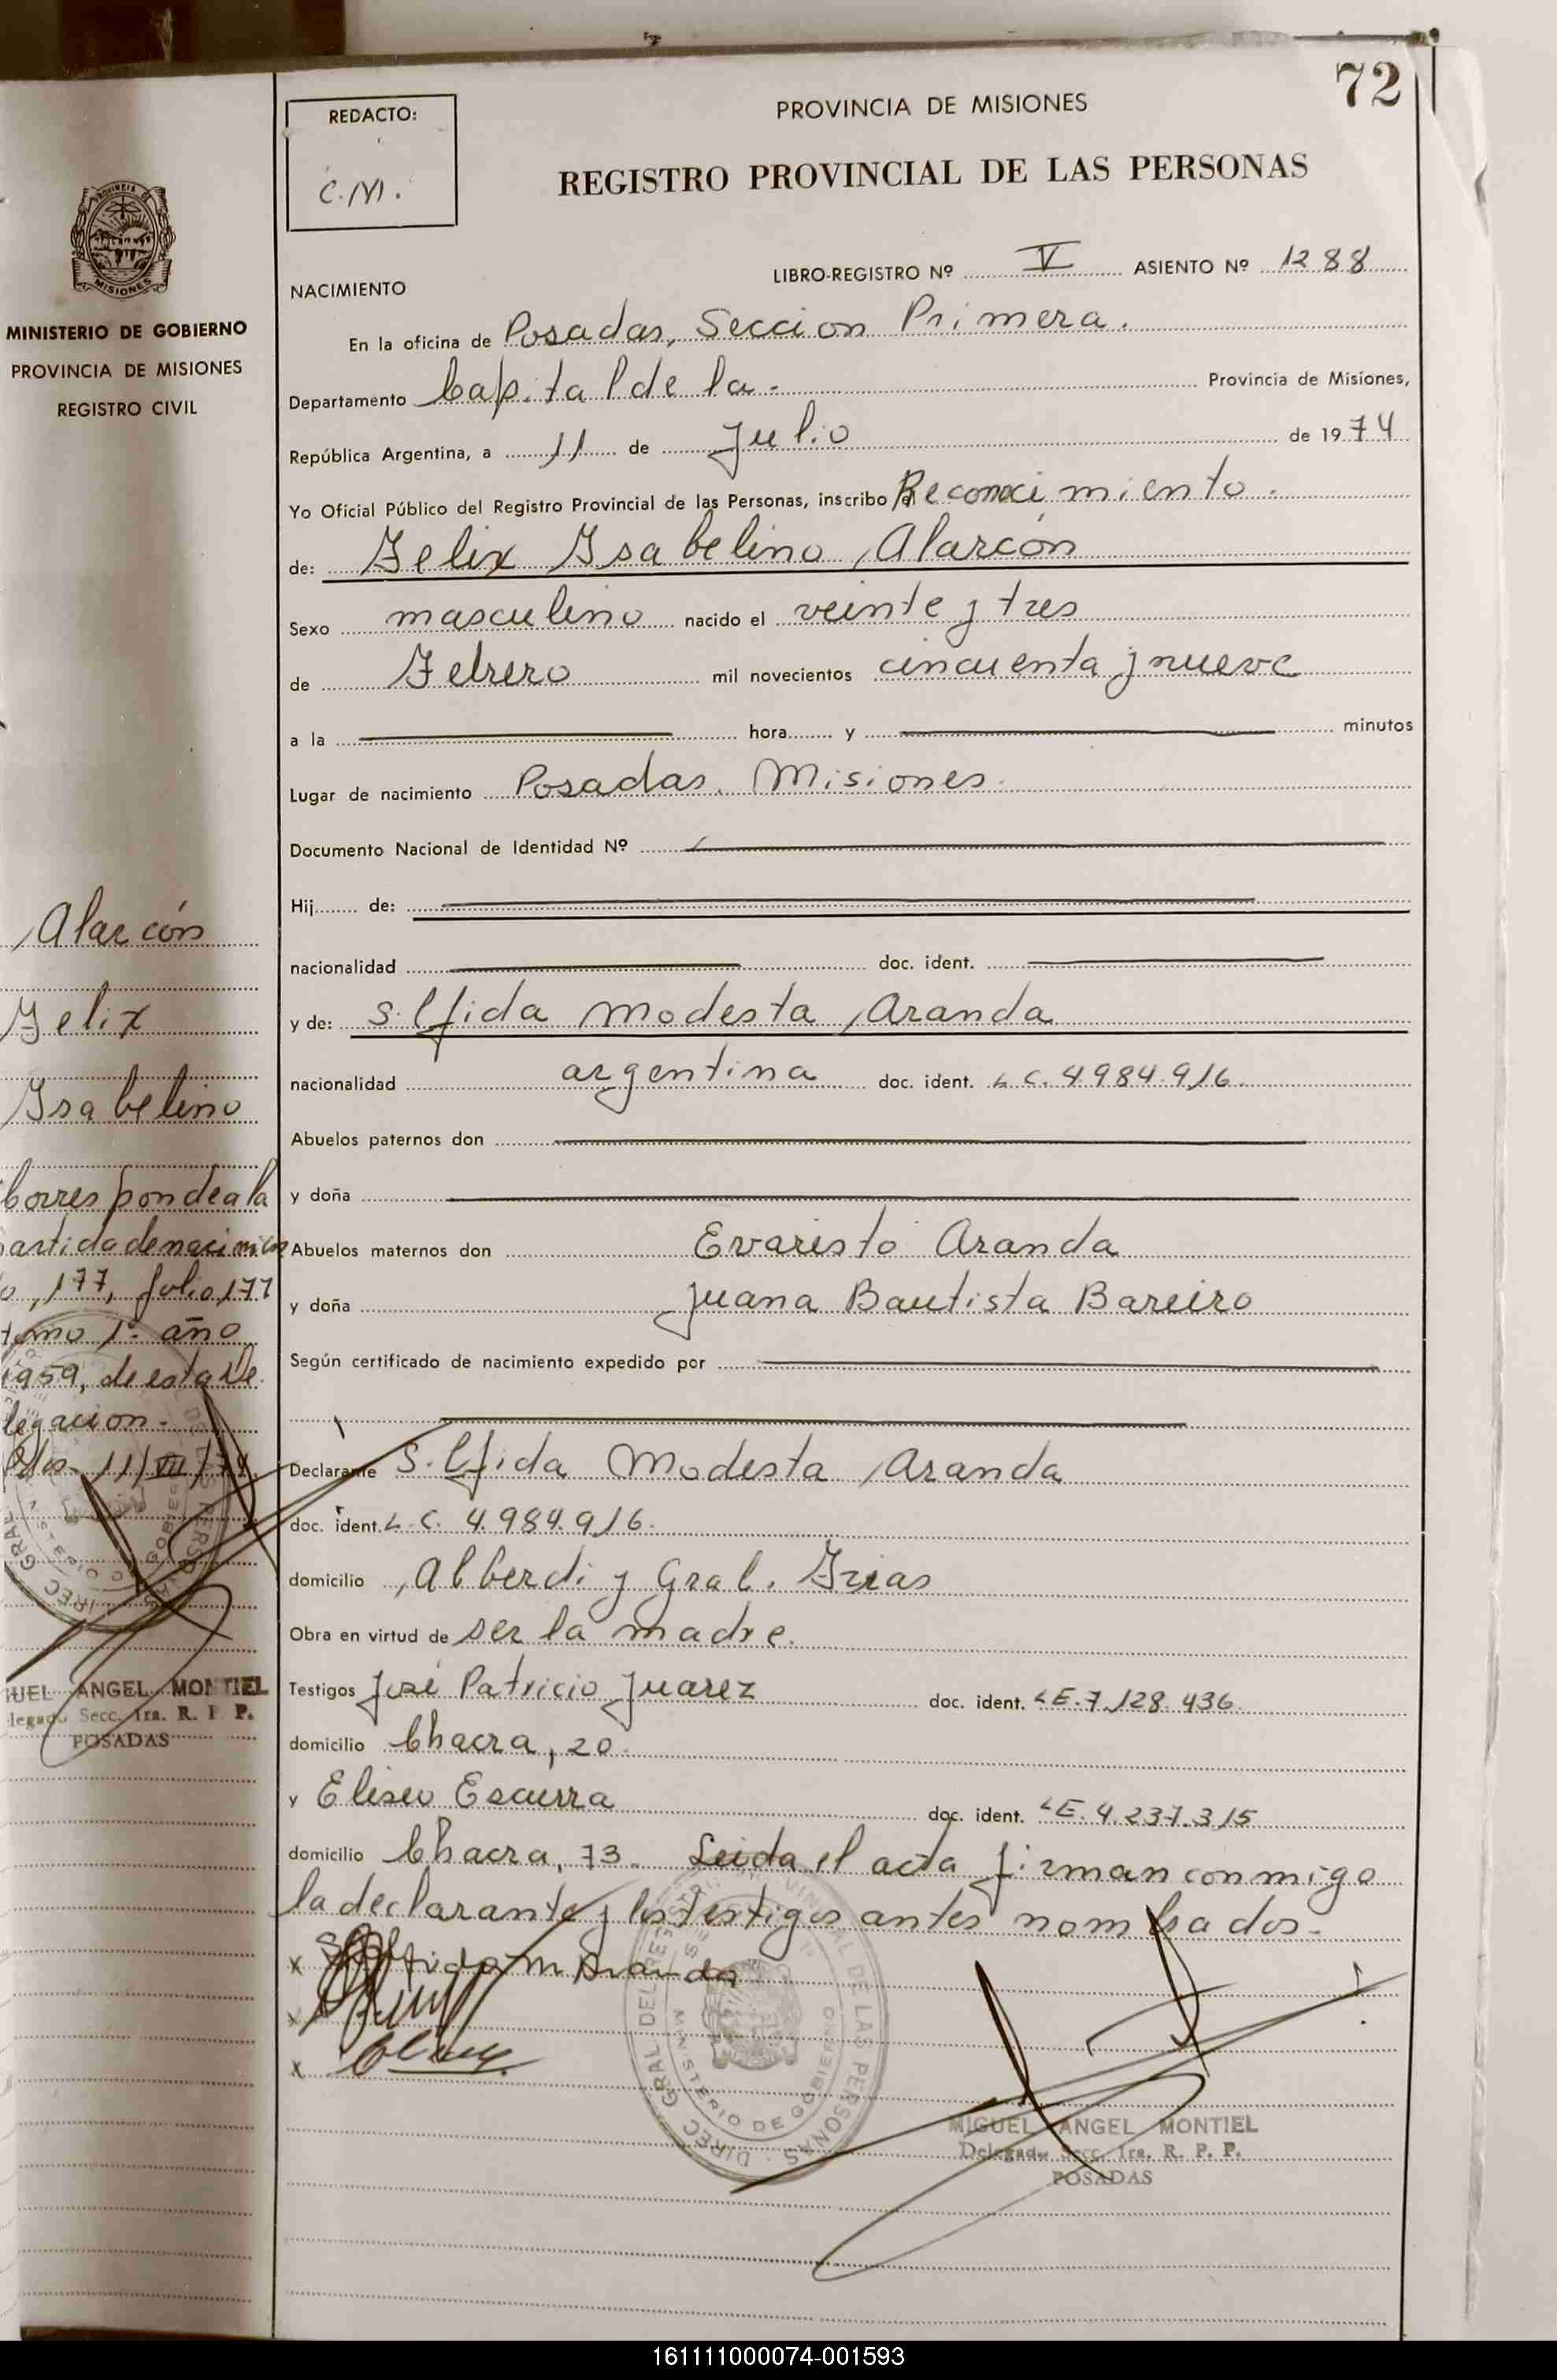 72
REDACTO:
C.M.
PROVINCIA DE MISIONES
REGISTRO PROVINCIAL DE LAS PERSONAS
LIBRO-REGISTRO Nº V ASIENTO Nº 1288
NACIMIENTO
En la oficina de Posadas, Seccion Primera.
Departamento Capital de la- Provincia de Misiones,
República Argentina, a 11 de Julio de 1974
Yo Oficial Público del Registro Provincial de las Personas, inscribo el Reconocimiento.
de: Felix Ysabelino Alarcón
Sexo masculino nacido el veinte y tres
de Febrero mil novecientos cincuenta y nueve
a la hora y minutos
Lugar de nacimiento Posadas. Misiones.
Documento Nacional de Identidad Nº
Hij de:
nacionalidad doc. ident.
y de: Silfida Modesta Aranda
nacionalidad argentina doc. ident. L.C. 4984.916.
Abuelos paternos don
y doña
Abuelos maternos don Evaristo Aranda
y doña Juana Bautista Bareiro
Según certificado de nacimiento expedido por
Declarante Silfida Modesta Aranda
doc. ident. L.C. 4.984.916.
domicilio Alberdi y Gral. Frias
Obra en virtud de ser la madre.
Testigos José Patricio Juarez doc. ident. LE.7.128.436.
domicilio Chacra, 20.
y Eliseo Escurra doc. ident. LE.4.237.315
domicilio Chacra, 73. Leida el acta firman conmigo
la declarante y los testigos antes nombrados.-
x Silfida M Aranda
x
x
DIREC. GRAL. DEL REGISTRO PROVINCIAL DE LAS PERSONAS
MINISTERIO DE GOBIERNO
MIGUEL ANGEL MONTIEL
Delegado Secc. 1ra. R. P. P.
POSADAS
PROVINCIA
MISIONES
MINISTERIO DE GOBIERNO
PROVINCIA DE MISIONES
REGISTRO CIVIL
Alarcón
Felix
Ysabelino
Corresponde a la
partida de nacimien
o, 177, folio 177
tomo 1º año
1959, de esta De
legacion.-
Pdas. 11/VII/74.
GUEL ANGEL MONTIEL
legado Secc. 1ra. R. P. P.
POSADAS
161111000074-001593